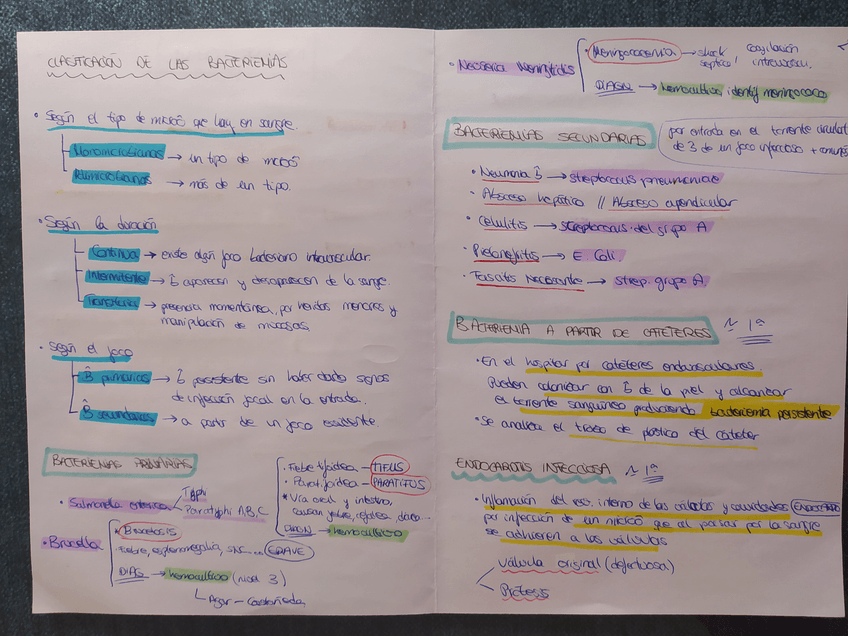 CLASIFICACIÓN DE LAS BACTERIEMIAS
• Según el tipo de microó que hay en sangre.
Monomicrobianas → un tipo de microó
Polimicrobianas → más de un tipo.
• Según la duración
Continua → existe algún foco bacteriano intravascular.
Intermitente → B aparecen y desaparecen de la sangre.
Transitoria → presencia momentánea, por heridas menores y
manipulación de mucosas.
• Según el foco
B primarias → B persistente sin haber dado signos
de infección focal en la entrada.
B secundarias → a partir de un foco existente.
BACTERIEMIAS PRIMARIAS
• Salmonella enterica
Typhi
Paratyphi A,B,C
• Fiebre tifoidea — TIFUS
• Paratifoidea — PARATIFUS
* Vía oral y intestino,
causan fiebre, cefalea, diarrea...
DIAGN → hemocultivo
• Brucella
• Brucelosis
• Fiebre, esplenomegalia, SNC.... GRAVE
DIAG → hemocultivo (nivel 3)
Agar - Castañeda
• Neisseria Meningitidis
• Meningococemia → shock séptico, coagulación intravascu.
DIAGN → hemocultivo identif meningococo
BACTERIEMIAS SECUNDARIAS
por entrada en el torrente circulat
de B de un foco infeccioso + común
• Neumonía B → streptococcus pneumoniae
• Absceso hepático // Absceso apendicular
• Celulitis → streptococcus del grupo A
• Pielonefritis → E. Coli
• Fascitis Necrosante → strep. grupo A.
BACTERIEMIA A PARTIR DE CATÉTERES ~ 1ª
• En el hospital por catéteres endovasculares
Pueden colonizar con B de la piel y alcanzar
el torrente sanguíneo produciendo bacteriemia persistente
• Se analiza el trozo de plástico del catéter
ENDOCARDITIS INFECCIOSA ~ 1ª
• Inflamación del rev. interno de las válvulas y cavidades ENDOCARDIO
por infección de un microó que al pasar por la sangre
se adhieren a las válvulas
Válvula original (defectuosa)
Prótesis